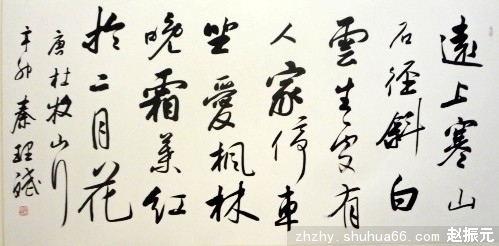 遠上寒山
石徑斜白
雲生處有
人家停車
坐愛楓林
晚霜葉红
於二月花
唐杜牧山行
辛卯 秦理斌
zhzhy.shuhua66.com 赵振元